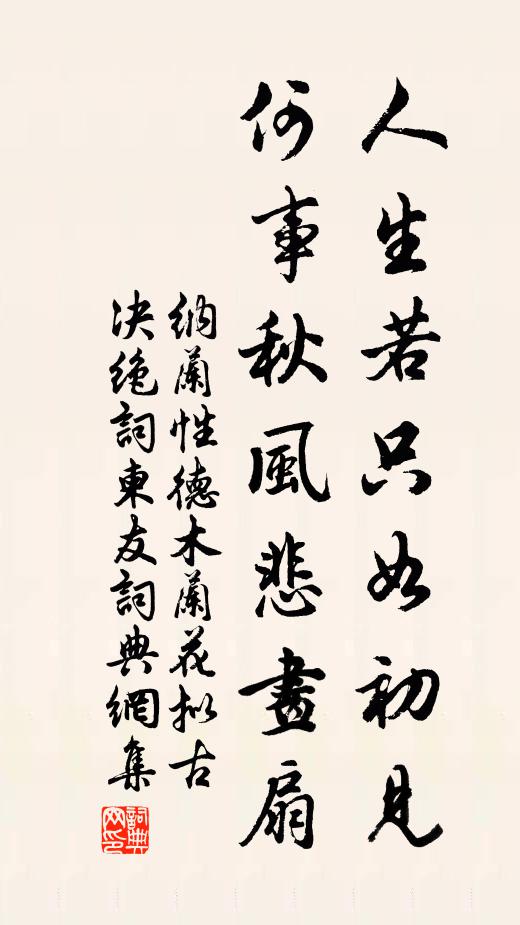 人生若只如初見
何事秋風悲畫扇
納蘭性德木蘭花拟古
决絕詞東友詞典網集
詞典网印